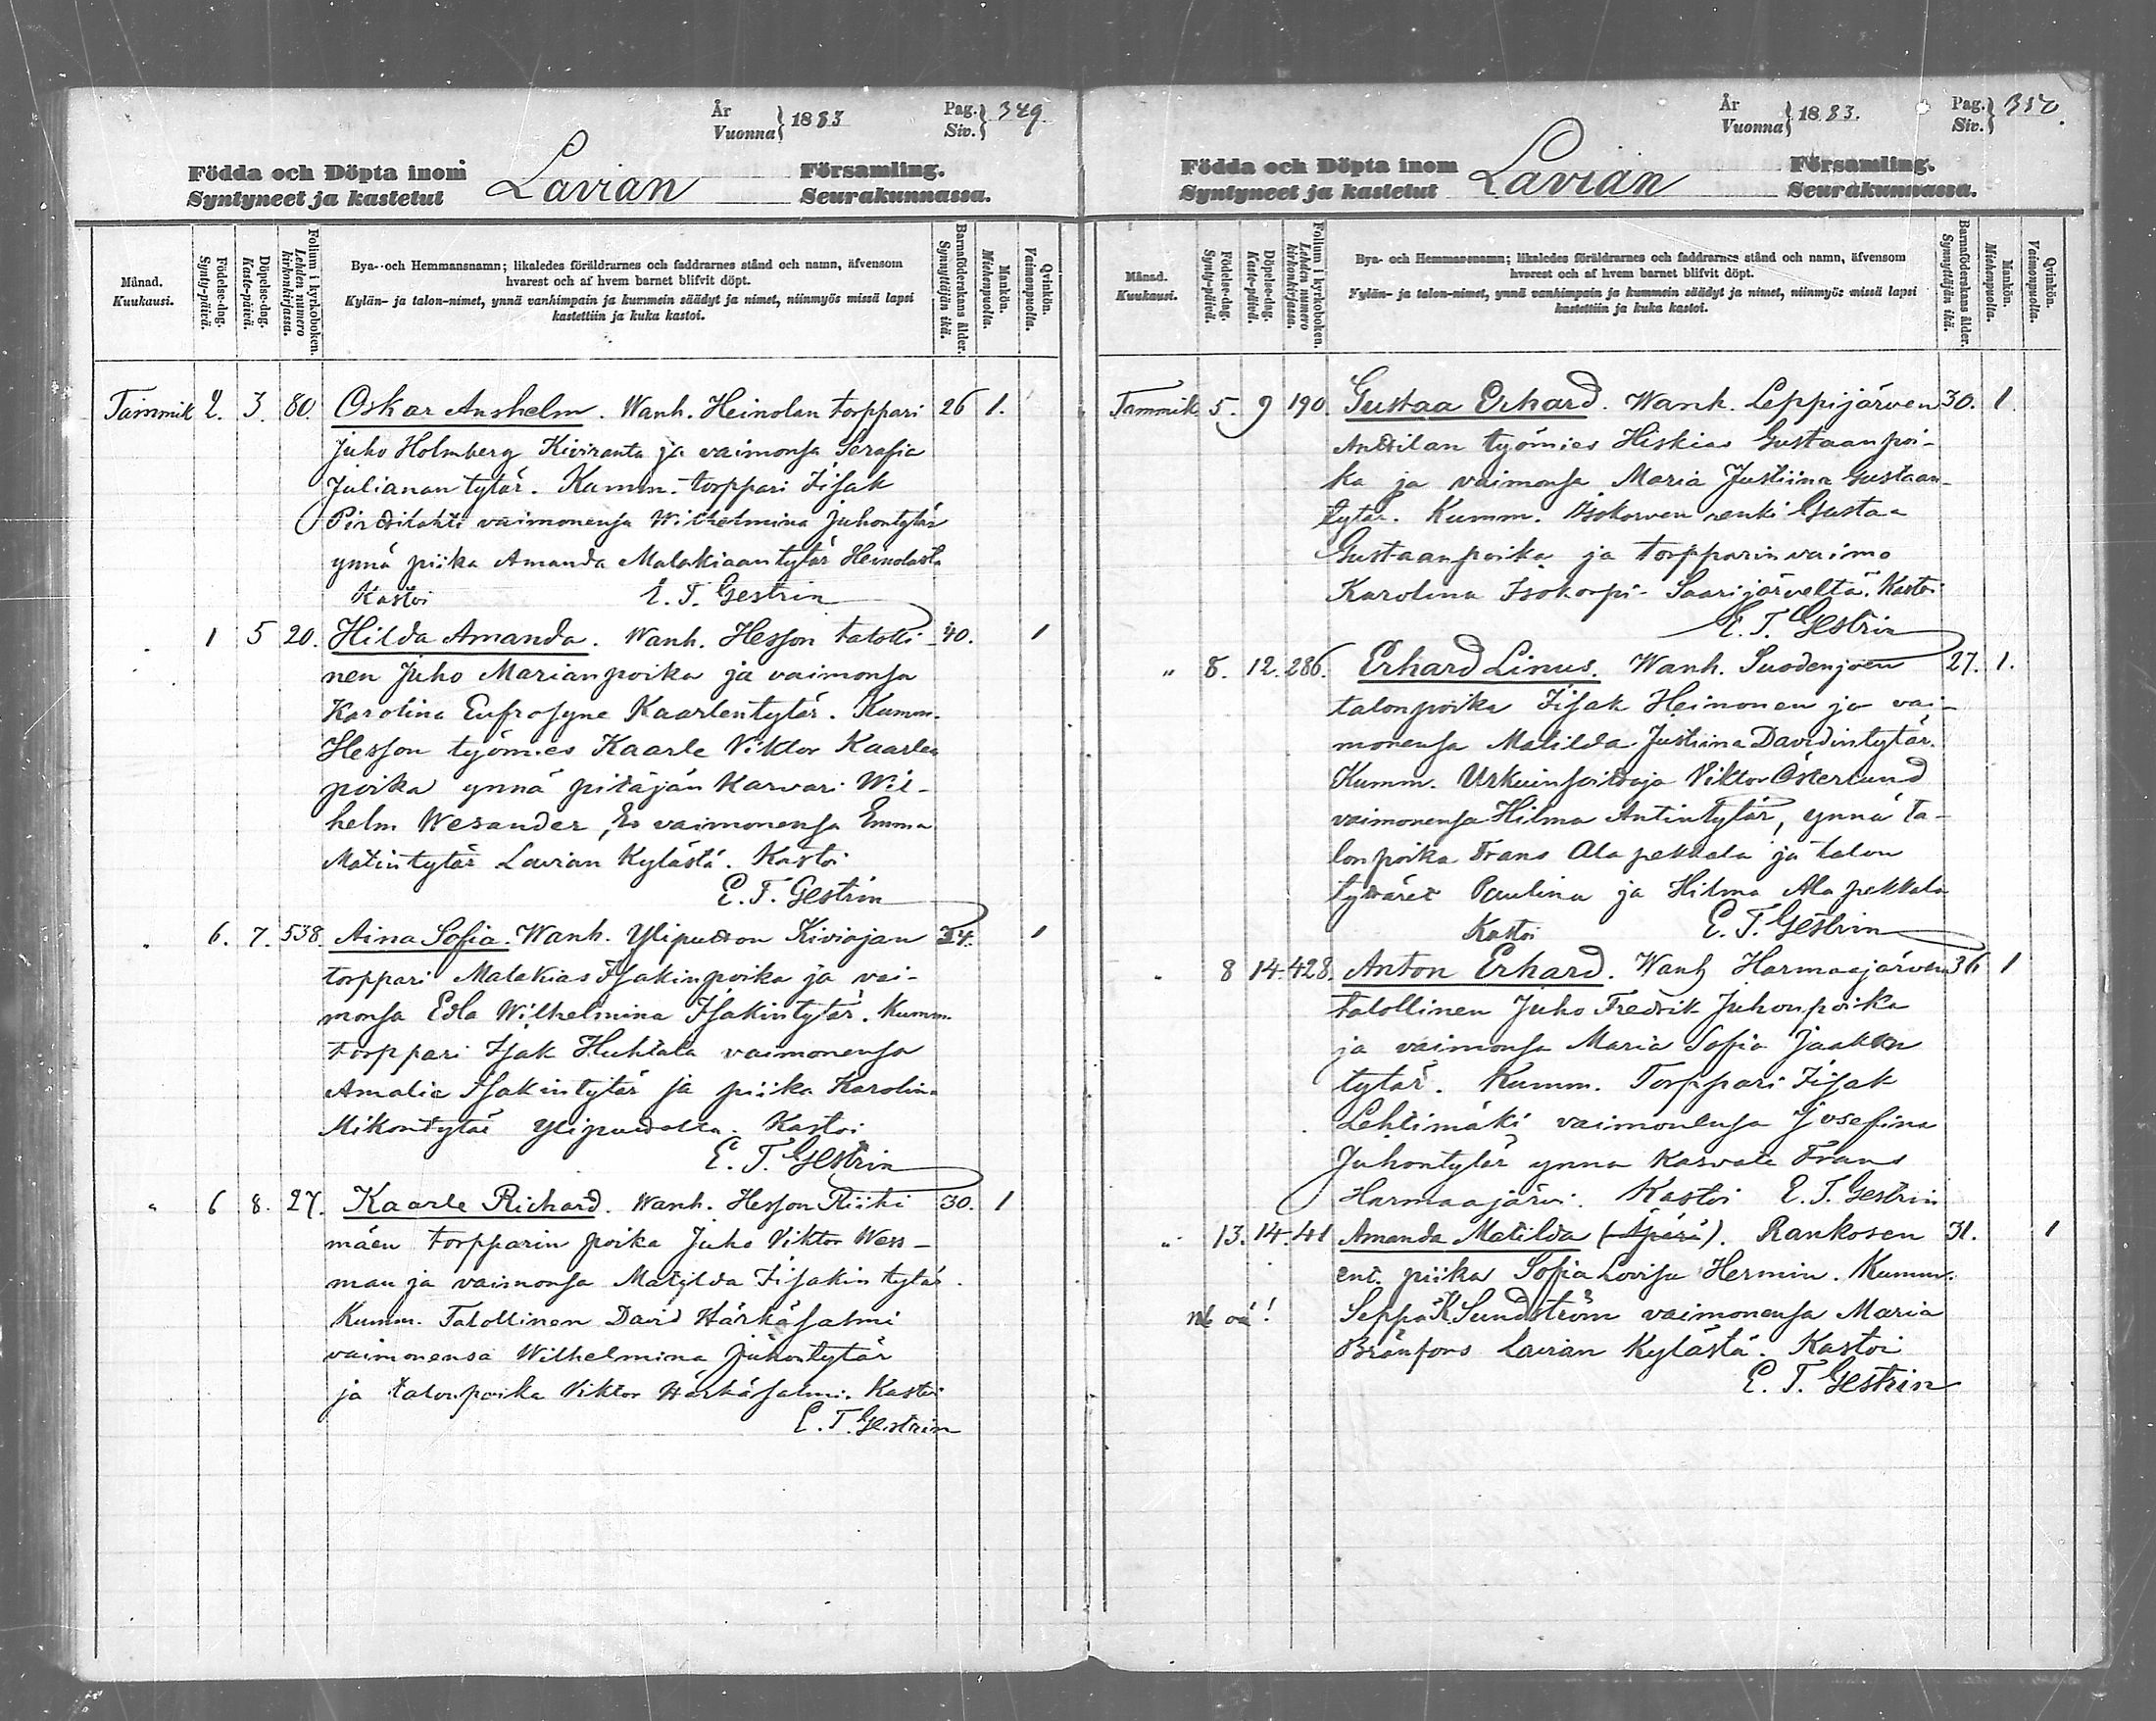 År
Vuonna } 1883
Pag.
Siv. } 349
Födda och Döpta inom
Syntyneet ja kastetut
Lavian
Församling.
Seurakunnassa.
Månad.
Kuukausi.
Födelse-dag.
Synty-päivä.
Döpelse-dag.
Kaste-päivä.
Folium i kyrkoboken.
Lehden numero kirkonkirjassa.
Bya- och Hemmansnamn; likaledes föräldrarnes och faddrarnes stånd och namn, äfvensom
hvarest och af hvem barnet blifvit döpt.
Kylän- ja talon-nimet, ynnä vanhimpain ja kummein säädyt ja nimet, niinmyös missä lapsi
kastettiin ja kuka kastoi.
Barnaföderskans ålder.
Synnyttäjän ikä.
Mankön.
Miehenpuolta.
Qvinkön.
Vaimonpuolta.
Tammik 2. 3. 80. Oskar Anshelm. Wanh. Heinolan torppari 26 1.
Juho Holmberg Kiviranta ja vaimonsa Serafia
Julianan tytär. Kumm. torppari Iisak
Pirttilahti vaimonensa Wilhelmina Juhontytär
ynnä piika Amanda Malakiaantytär Heinolasta
Kastoi E. T. Gestrin
" 1 5 20. Hilda Amanda. Wanh. Hesson talolli- 40. 1
nen Juho Marianpoika ja vaimonsa
Karolina Eufrosyne Kaarlentytär. Kumm.
Hesson työmies Kaarle Viktor Kaarlen
poika ynnä pitäjän Karvari Wil-
helm Wesander, vaimonensa Emma
Matintytär Lavian Kylästä. Kastoi
E. T. Gestrin
" 6. 7. 538. Aina Sofia. Wanh. Yliputton Kiviojan 34. 1
torppari Malakias Isakinpoika ja vai-
monsa Edla Wilhelmina Isakintytär. Kumm.
torppari Isak Huhtala vaimonensa
Amalia Isakintytär ja piika Karolina
Mikontytär Yliputolta. Kastoi
E. T. Gestrin
" 6 8. 27. Kaarle Richard. Wanh. Hesson Riihi 30. 1
mäen torpparin poika Juho Viktor Wess-
man ja vaimonsa Matilda Iisakin tytär.
Kumm. Talollinen David Härkäsalmi
vaimonensa Wilhelmina Juhontytär
ja talonpoika Viktor Härkäsalmi. Kastoi
E. T. Gestrin
År
Vuonna } 1883.
Pag.
Siv. } 350.
Födda och Döpta inom
Syntyneet ja kastetut
Lavian
Församling.
Seurakunnassa.
Månad.
Kuukausi.
Födelse-dag.
Synty-päivä.
Döpelse-dag.
Kaste-päivä.
Folium i kyrkoboken.
Lehden numero kirkonkirjassa.
Bya- och Hemmansnamn; likaledes föräldrarnes och faddrarnes stånd och namn, äfvensom
hvarest och af hvem barnet blifvit döpt.
Kylän- ja talon-nimet, ynnä vanhimpain ja kummein säädyt ja nimet, niinmyös missä lapsi
kastettiin ja kuka kastoi.
Barnaföderskans ålder.
Synnyttäjän ikä.
Mankön.
Miehenpuolta.
Qvinkön.
Vaimonpuolta.
Tammik 5. 9 190 Gustaa Erhard. Wanh. Leppijärven 30. 1.
Anttilan työmies Hiskias Gustaanpoi-
ka ja vaimonsa Maria Justiina Gustaan-
tytär. Kumm. Isokorven renki Gustaa
Gustaanpoika ja torpparinvaimo
Karolina Isokorpi Saarijärveltä. Kastoi
E. T. Gestrin
" 8. 12. 286. Erhard Linus. Wanh. Suodenjoen 27. 1.
talonpoika Iisak Heinonen ja vai-
monensa Matilda Justiina Davidintytär.
Kumm. Urkuinsoittaja Viktor Österlund
vaimonensa Hilma Antintytär, ynnä ta-
lonpoika Frans Alapekkala ja talon
tyttäret Paulina ja Hilma Alapekkala
Kastoi E. T. Gestrin
" 8 14. 428. Anton Erhard. Wanh Harmaajärven 36 1
talollinen Juho Fredrik Juhonpoika
ja vaimonsa Maria Sofia Jaakon
tytär. Kumm. Torppari Iisak
Lehtimäki vaimonensa Josefina
Juhontytär ynna Frans
Harmaajärvi. Kastoi E. T. Gestrin
" 13. 14. 41 Amanda Matilda (Äpärä). Rankosen 31. 1
ent. piika Sofia Lovisa Hermin. Kumm.
nb oä! Seppä K Sundström vaimonensa Maria
Lavian Kylästä. Kastoi
E. T. Gestrin